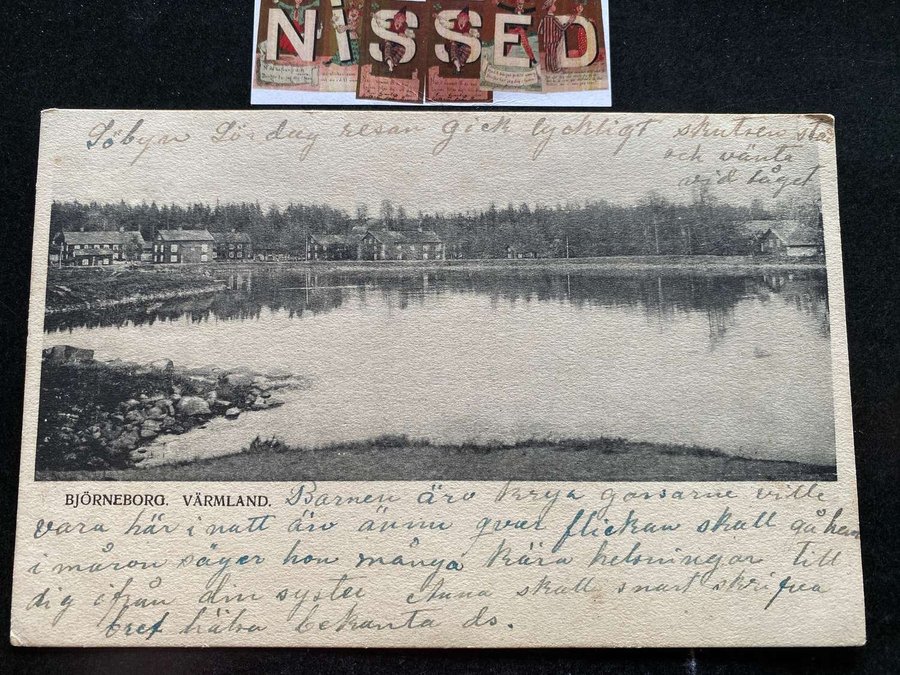 NISSED
Söbyn Lördag resan gick lyckligt skutsen står
och vänta
vid tåget
BJÖRNEBORG. VÄRMLAND. Barnen äro krya gossarne ville
vara här i natt äro ännu qvar flickan skall gå hem
i måron säger hon många kära helsningar till
dig ifrån din syster Anna skall snart skrifva
bref hälsa bekanta ds.